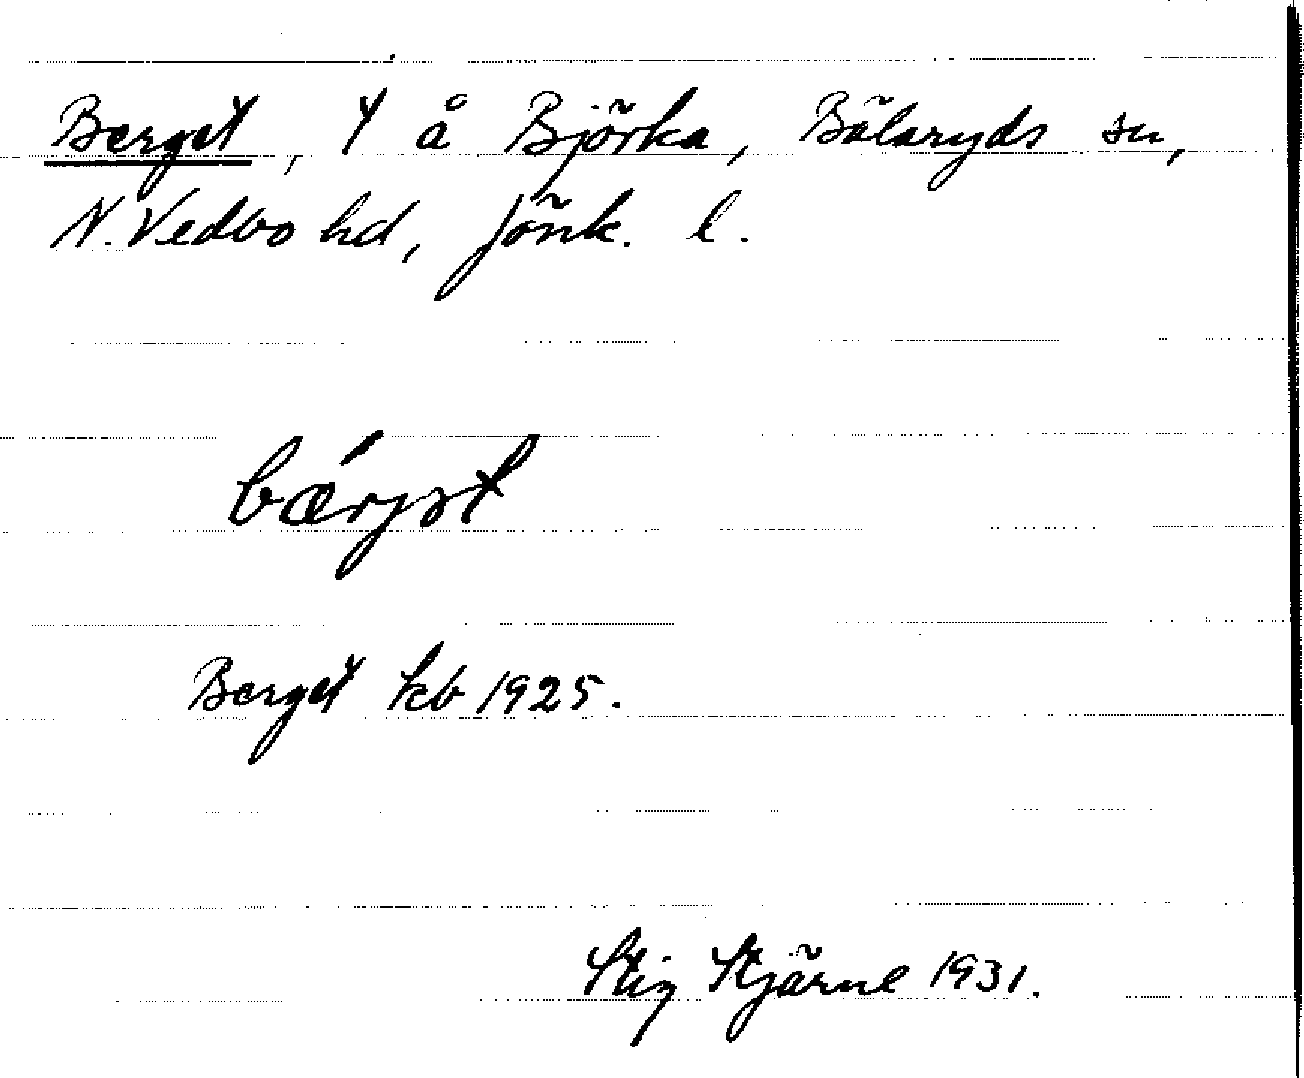 Berget, t å Björka, Bälaryds sn,
N. Vedbo hd, Jönk. l.
bǽrjət
Berget kb 1925.
Stig Stjärne 1931.